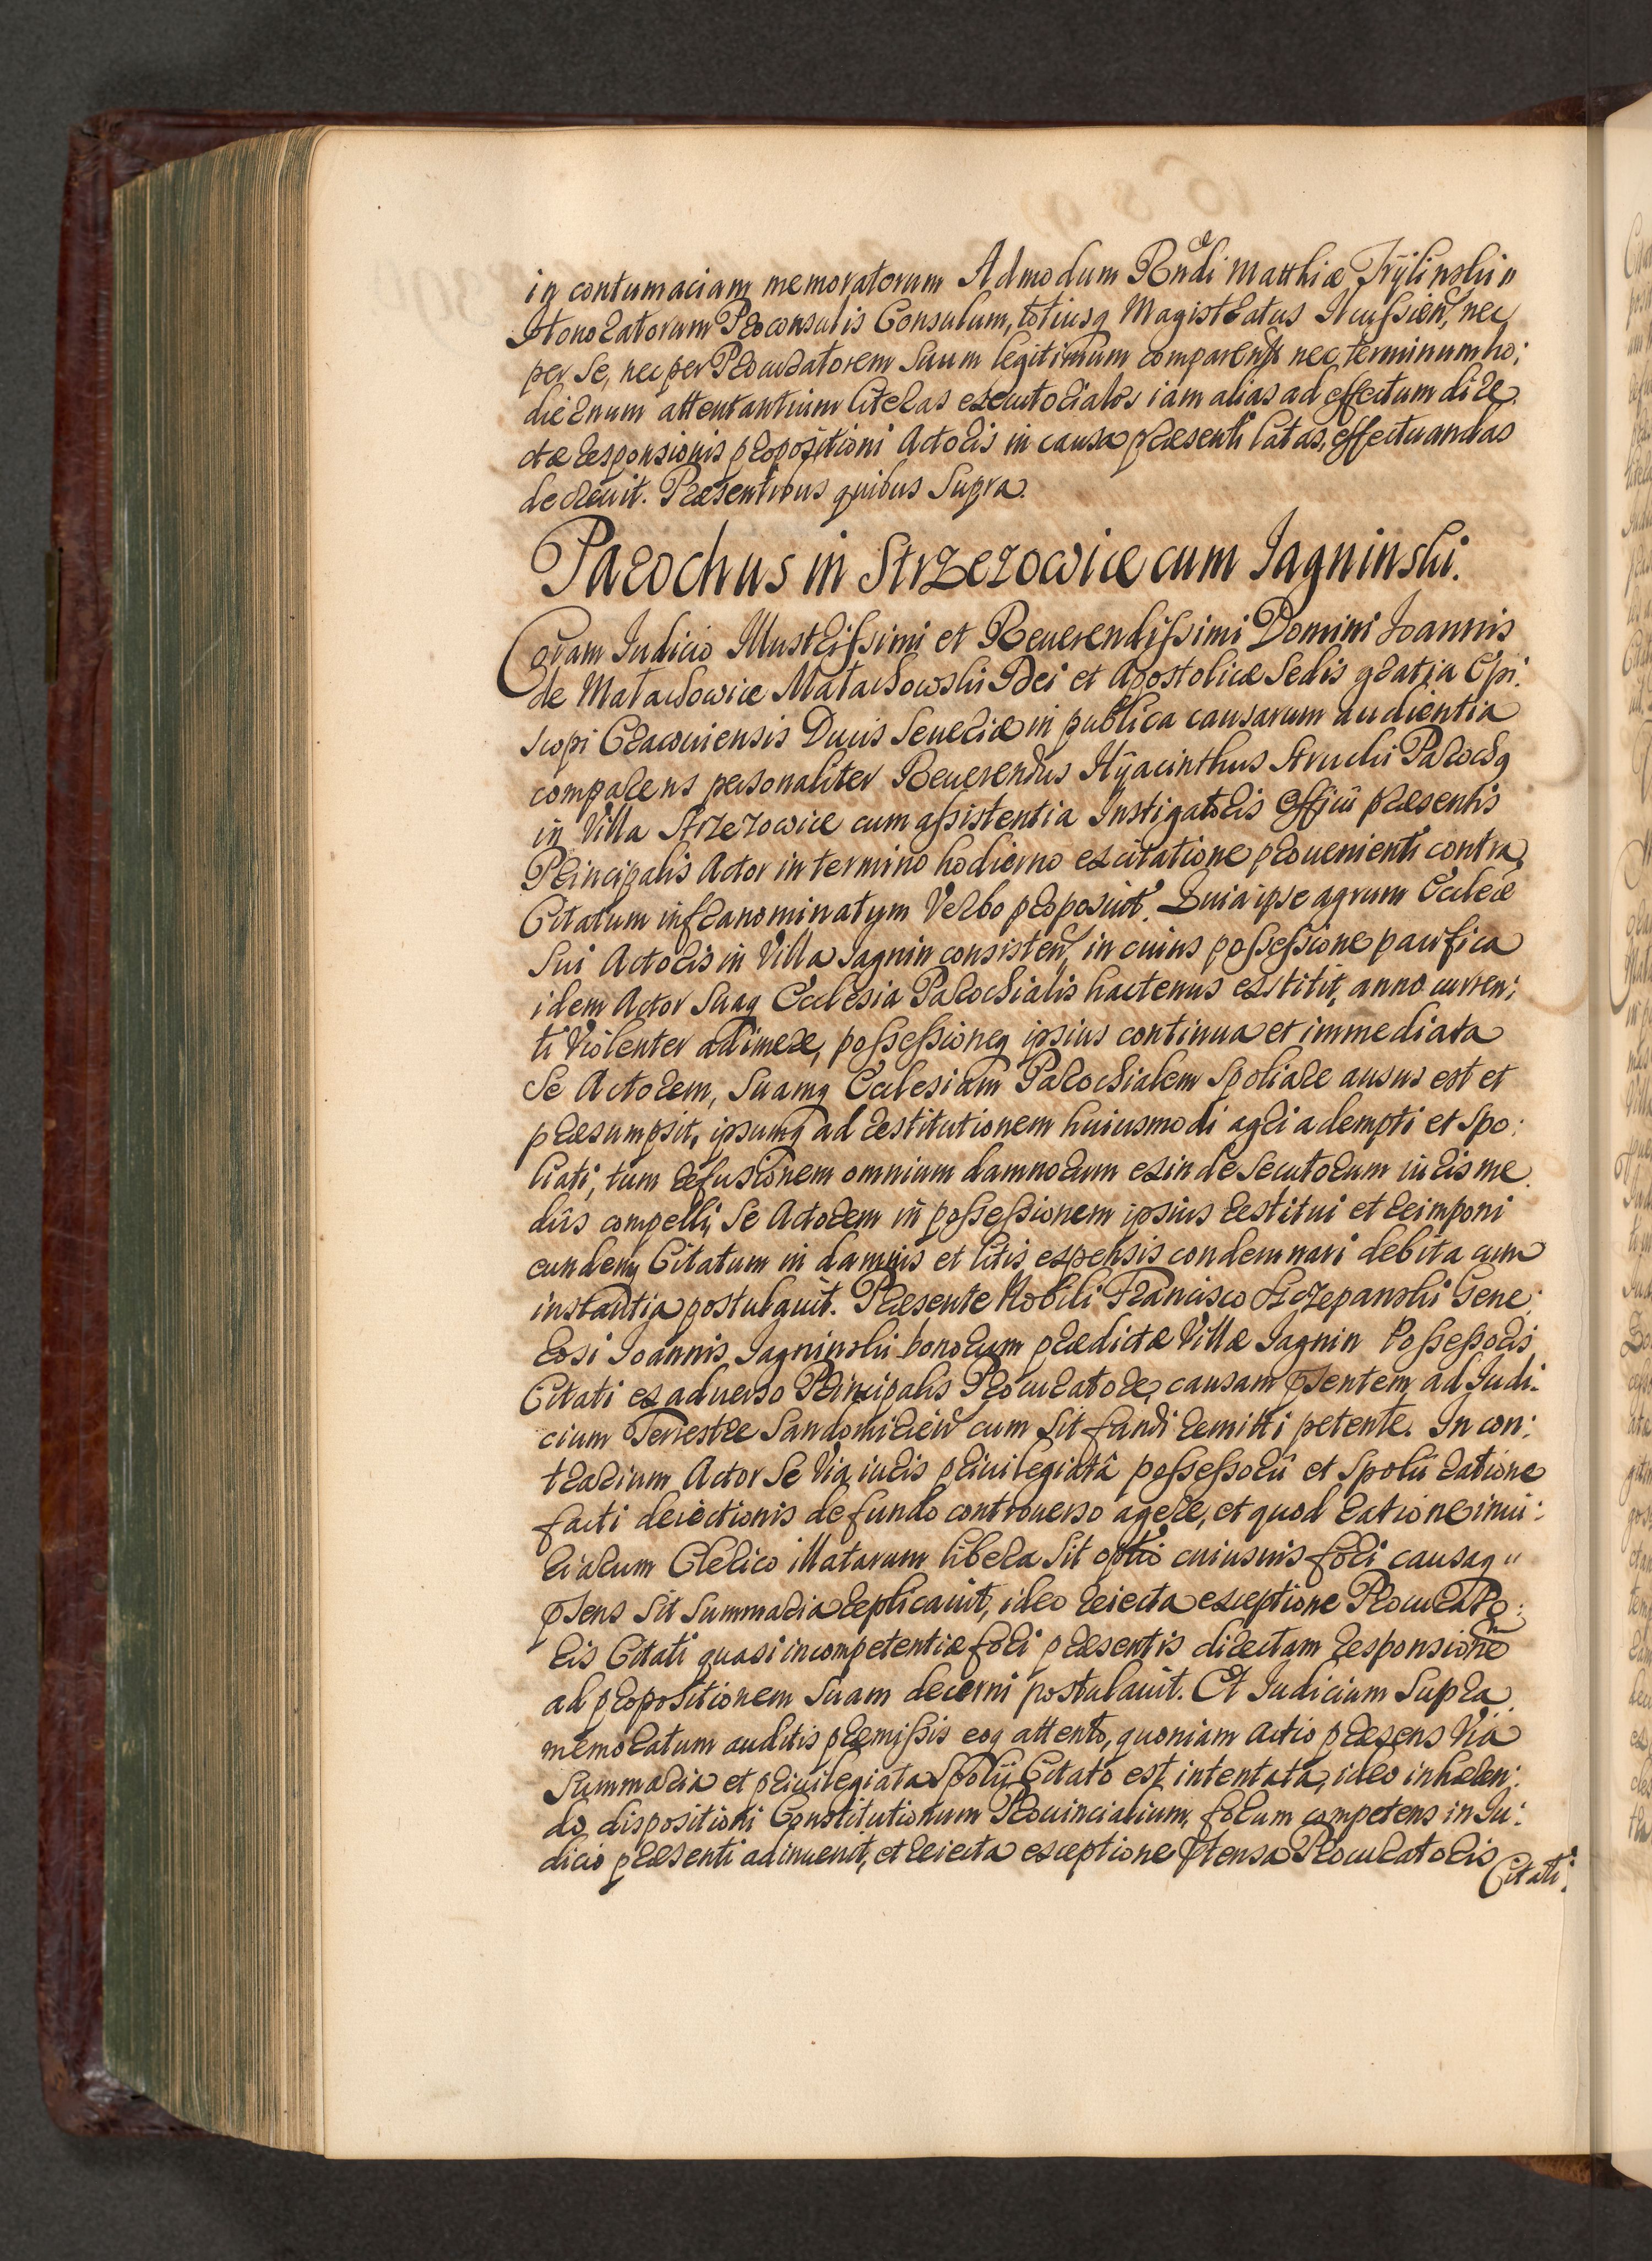 in contumaciam memoratorum Admodum Rndi Matthiæ Trÿlinski
Honoratorum Proconsulis Consulum, totiusq Magistratus Ilcussien, nec
per se, nec per Procuratorem suum legitimum comparen nec terminum ho:
diernum attentantium literas executoriales iam alias ad effectum dire
ctæ responsionis propositioni Actoris in causa præsenti latas, effectuandas
decreuit. Præsentibus quibus supra.
Parochus in Strzezowice cum Jagninski.
Coram Iudicio Illustrissimi et Reuerendissimi Domini Ioannis
de Małachowice Małachowski Dei et Apostolicæ Sedis gratia Epi:
scopi Cracouiensis Ducis Seueriæ in publica causarum audientia
comparens personaliter Reuerendus Hÿacinthus Strucki Parochq
in Villa Strzezowice cum assistentia Instigatoris officii præsentis
Principalis Actor in termino hodierno ex citatione prouenienti contra
Citatum infranominatum Verbo proposuit. Quia ipse agrum Eccleæ
sui Actoris in Villa Jagnin consisten, in cuius possessione pacifica
idem Actor suaq Ecclesia Parochialis hactenus extitit, anno curren:
ti Violenter adimere, possessioneq ipsius continua et immediata
se Actorem, suamq Ecclesiam Parochialem spoliare ausus est et
præsumpsit, ipsumq ad restitutionem huiusmodi agri adempti et spo:
liati, tum refusionem omnium damnorum exinde secutorum iuris me
diis compelli, se Actorem in possessionem ipsius restitui et reimponi
eundemq Citatum in damnis et litis expensis condemnari debita cum
instantia postulauit. Præsente Nobili Francisco Szczepanski Gene:
rosi Ioannis Jagninski bonorum prædictæ Villæ Jagnin Possessoris
Citati ex aduerso Principalis Procuratore, causam psentem ad Iudi:
cium Terrestre Sandomirien cum sit fundi remitti petente. In con:
trarium Actor se Via iuris priuilegiatâ possessorii et spolii ratione
facti deiectionis de fundo controuerso agere, et quod ratione iniu:
riarum Clerico illatarum libera sit optio cuiusuis fori causaq
psens sit summaria replicauit, ideo reiecta exceptione Procurato:
ris Citati quasi incompetentiæ fori præsentis directam responsione
ad propositionem suam decerni postulauit. Et Iudicium supra
memoratum auditis præmissis eoq attento, quoniam actio præsens Via
summaria et priuilegiata Spolij Citato est intentata, ideo inhæren:
do dispositioni Constitutionum Prouincialium, forum competens in Iu:
dicio præsenti adinuenit, et reiecta exceptione ptensa Procuratoris
Citati: